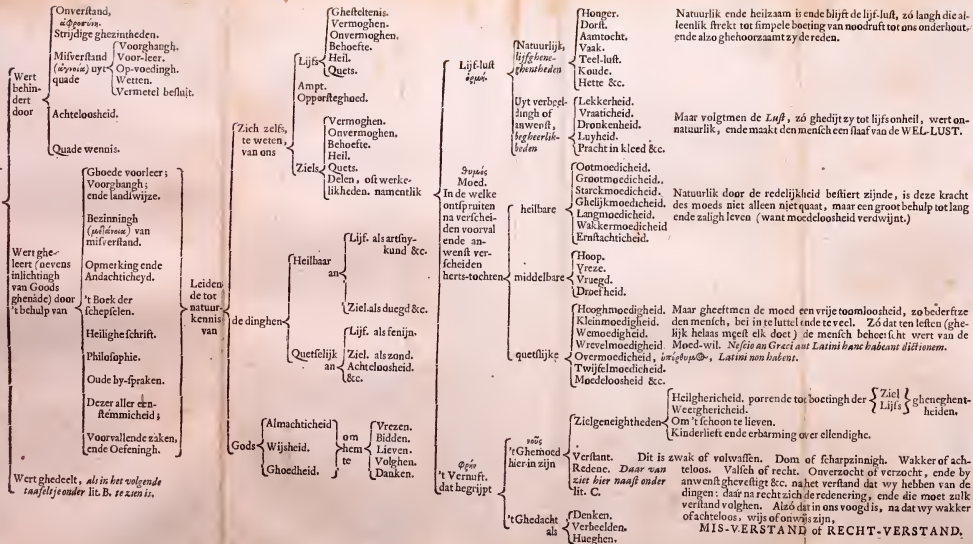 Wert
behin-
dert
door
Onverstand,
ἀφροσύνη.
Strijdige ghezintheden.
Misverstand
(ἄγνοια) uyt
quade
Voorghangh.
Voor-leer.
Op-voedingh.
Wetten.
Vermetel besluit.
Achteloosheid.
Quade wennis.
Wert ghe-
leert (nevens
inlichtingh
van Goods
ghenade) door
't behulp van
Ghoede voorleer;
Voorghangh;
ende landswijze.
Bezinningh
(μετάνοια) van
misverstand.
Opmerking ende
Andachticheyd.
't Boek der
schepselen.
Heilighe schrift.
Philosophie.
Oude by-spraken.
Dezer aller een-
stemmicheid;
Voorvallende zaken,
ende Oefeningh.
Wert ghedeelt, als in het volgende
taafeltje onder lit. B. te zien is.
Leiden
de tot
natuur-
kennis
van
Zich zelfs,
te weten,
van ons
Lijfs
Ghesteltenis.
Vermoghen.
Onvermoghen.
Behoefte.
Heil.
Quets.
Ampt.
Oppersteghoed.
Ziels
Vermoghen.
Onvermoghen.
Behoefte.
Heil.
Quets.
Delen, oft werke-
likheden. namentlik
de dinghen
Heilbaar
an
Lijf. als artsny-
kund &c.
Ziel. als duegd &c.
Quetselijk
an
Lijf. als fenijn.
Ziel. als zond.
Achteloosheid.
&c.
Gods
Almachticheid
Wijsheid.
Ghoedheid.
om
hem
te
Vrezen.
Bidden.
Lieven.
Volghen.
Danken.
Lijf-lust
ὁρμή.
Natuurlijk,
lijfghene-
ghentheden
Honger.
Dorst.
Aamtocht.
Vaak.
Teel-lust.
Koude.
Hette &c.
Natuurlik ende heilzaam is ende blijft de lijf-lust, zó langh die al-
leenlik strekt tot simpele boeting van noodruft tot ons onderhout,
ende alzo ghehoorzaamt zy de reden.
Uyt verbeel-
dingh of
anwenst,
begheerlik-
heden
Lekkerheid.
Vraaticheid.
Dronkenheid.
Luyheid.
Pracht in kleed &c.
Maar volgtmen de Lust, zó ghedijt zy tot lijfs onheil, wert on-
natuurlik, ende maakt den mensch een slaaf van de WEL-LUST.
θυμός
Moed.
In de welke
ontspruiten
na verschei-
den voorval
ende an-
wenst ver-
scheiden
herts-tochten
heilbare
Ootmoedicheid.
Grootmoedicheid.
Starckmoedicheid.
Ghelijkmoedicheid.
Langmoedicheid.
Wakkermoedicheid
Ernstachticheid.
Natuurlik door de redelijkheid bestiert zijnde, is deze kracht
des moeds niet alleen niet quaat, maar een groot behulp tot lang
ende zaligh leven (want moedeloosheid verdwijnt.)
middelbare
Hoop.
Vreze.
Vruegd.
Droefheid.
quetslijke
Hooghmoedigheid.
Kleinmoedigheid.
Wemoedigheid.
Wrevelmoedigheid
Overmoedicheid, ὑπέρθυμος, Latini non habent.
Twijfelmoedicheid
Moedeloosheid &c.
Maar gheeftmen de moed een vrije toomloosheid, zo bederftze
den mensch, bei in te luttel ende te veel. Zó dat ten lesten (ghe-
lijk helaas meest elk doet) de mensch beheerscht wert van de
Moed-wil. Nescio an Græci aut Latini hanc habeant dictionem.
φρήν
't Vernuft.
dat begrijpt
νοῦς
't Ghemoed
hier in zijn
Zielgeneightheden
Heilghericheid, porrende tot boeting der
Ziel
Lijfs
gheneghent-
heiden.
Weetghericheid.
Om 't schoon te lieven.
Kinderlieft ende erbarming over ellendighe.
Verstant.
Redene. Daar van
ziet hier naast onder
lit. C.
Dit is zwak of volwassen. Dom of scharpzinnigh. Wakker of ach-
teloos. Valsch of recht. Onverzocht of verzocht, ende by
anwenst ghevestigt &c. na het verstand dat wy hebben van de
dingen: daar na recht zich de redenering, ende die moet zulk
verstand volghen. Alzó dat in ons voogd is, na dat wy wakker
of achteloos, wijs of onwijs zijn,
MIS-VERSTAND of RECHT-VERSTAND.
't Ghedacht
als
Denken.
Verbeelden.
Hueghen.